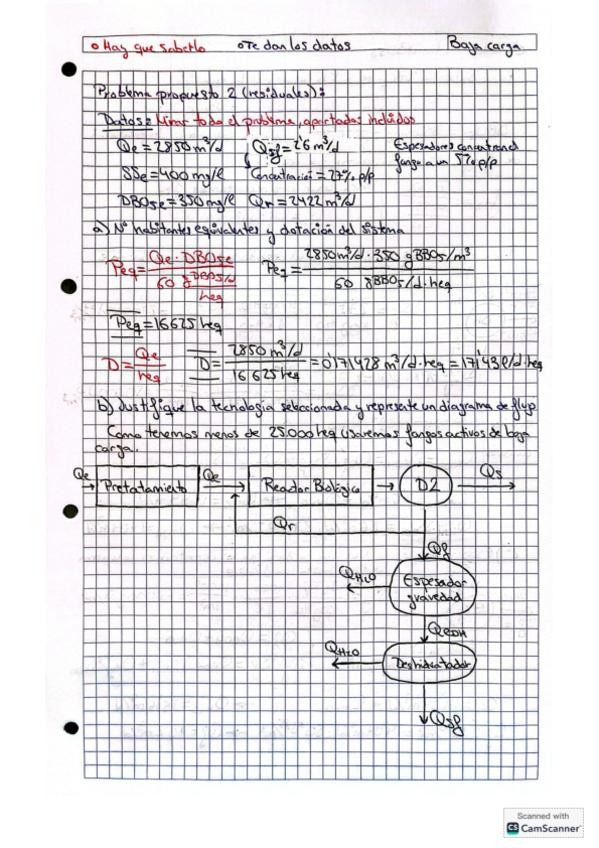 o Hay que saberlo oTe dan los datos Baja carga
Problema propuesto 2 (residuales):
Datos: Mirar todo el problema, apartados incluidos
Qe = 2850 m³/d Qsf = 2'6 m³/d Espesadores concentran el
fango a un 5% p/p
SSe = 400 mg/l Concentración = 27% p/p
DBO5e = 350 mg/l Qr = 2422 m³/d
a) Nº habitantes equivalentes y dotación del sistema
Peq = Qe · DBO5e / 60 g DBO5/d / heq Peq = 2850 m³/d · 350 g DBO5/m³ / 60 g DBO5/d·heq
Peq = 16625 heq
D = Qe / heq D = 2850 m³/d / 16625 heq = 0'171428 m³/d·heq = 171'43 l/d·heq
b) Justifique la tecnología seleccionada y represente un diagrama de flujo
Como tenemos menos de 25.000 heq usaremos fangos activos de baja
carga.
Qe Pretatamiento Qe Reactor Biológico D2 Qs
Qr
Qf
QH2O Espesador
gravedad
QeDH
QH2O Deshidratador
Qsf
Scanned with
CS CamScanner